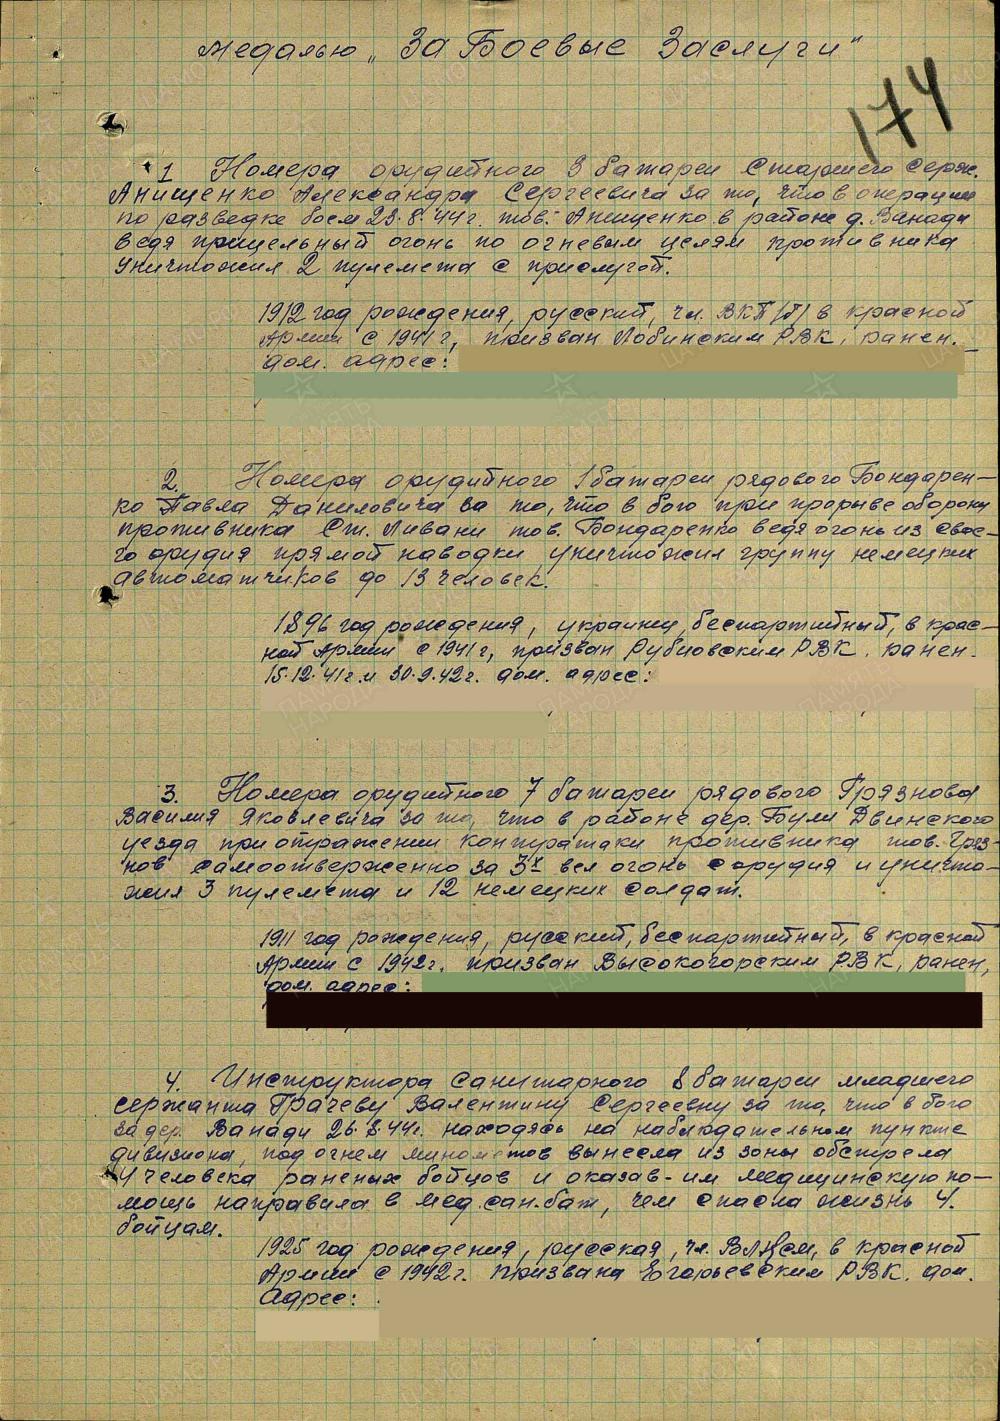 медалью „За Боевые Заслуги"
174
1 Номера орудийного 3 батареи Старшего серж.
Анищенко Александра Сергеевича за то, что в операции
по разведке боем 23.8.44г. тов. Анищенко в районе д. Ванади
ведя прицельный огонь по огневым целям противника
уничтожил 2 пулемета с прислугой.
1912 год рождения, русский, чл. ВКП/б/ в красной
Армии с 1941г, призван Лобинским РВК, ранен.
дом. адрес:
2. Номера орудийного 1 батареи рядового Бондарен-
ко Павла Даниловича за то, что в бою при прорыве обороны
противника Ст. Ливани тов. Бондаренко ведя огонь из свое-
го орудия прямой наводки уничтожил группу немецких
автоматчиков до 13 человек.
1896 год рождения, украинец, беспартийный, в крас-
ной Армии с 1941г, призван Рубцовским РВК. ранен.
15.12.41г. и 30.9.42г. дом. адрес:
3. Номера орудийного 7 батареи рядового Грязнова
Василия Яковлевича за то, что в районе дер. Були Двинского
уезда при отражении контратаки противника тов. Гряз-
нов самоотверженно за 3х вел огонь с орудия и уничто-
жил 3 пулемета и 12 немецких солдат.
1911 год рождения, русский, беспартийный, в красной
Армии с 1942г. призван Высокогорским РВК, ранен,
дом. адрес:
4. Инструктора санитарного 8 батареи младшего
сержанта Грачеву Валентину Сергеевну за то, что в бою
за дер. Ванади 26.8.44г. находясь на наблюдательном пункте
дивизиона, под огнем минометов вынесла из зоны обстрела
4 человека раненых бойцов и оказав-им медицинскую по-
мощь направила в мед.сан.бат, чем спасла жизнь 4.
бойцам.
1925 год рождения, русская, чл. ВЛКСМ, в красной
Армии с 1942г. призвана Егорьевским РВК. дом.
Адрес: